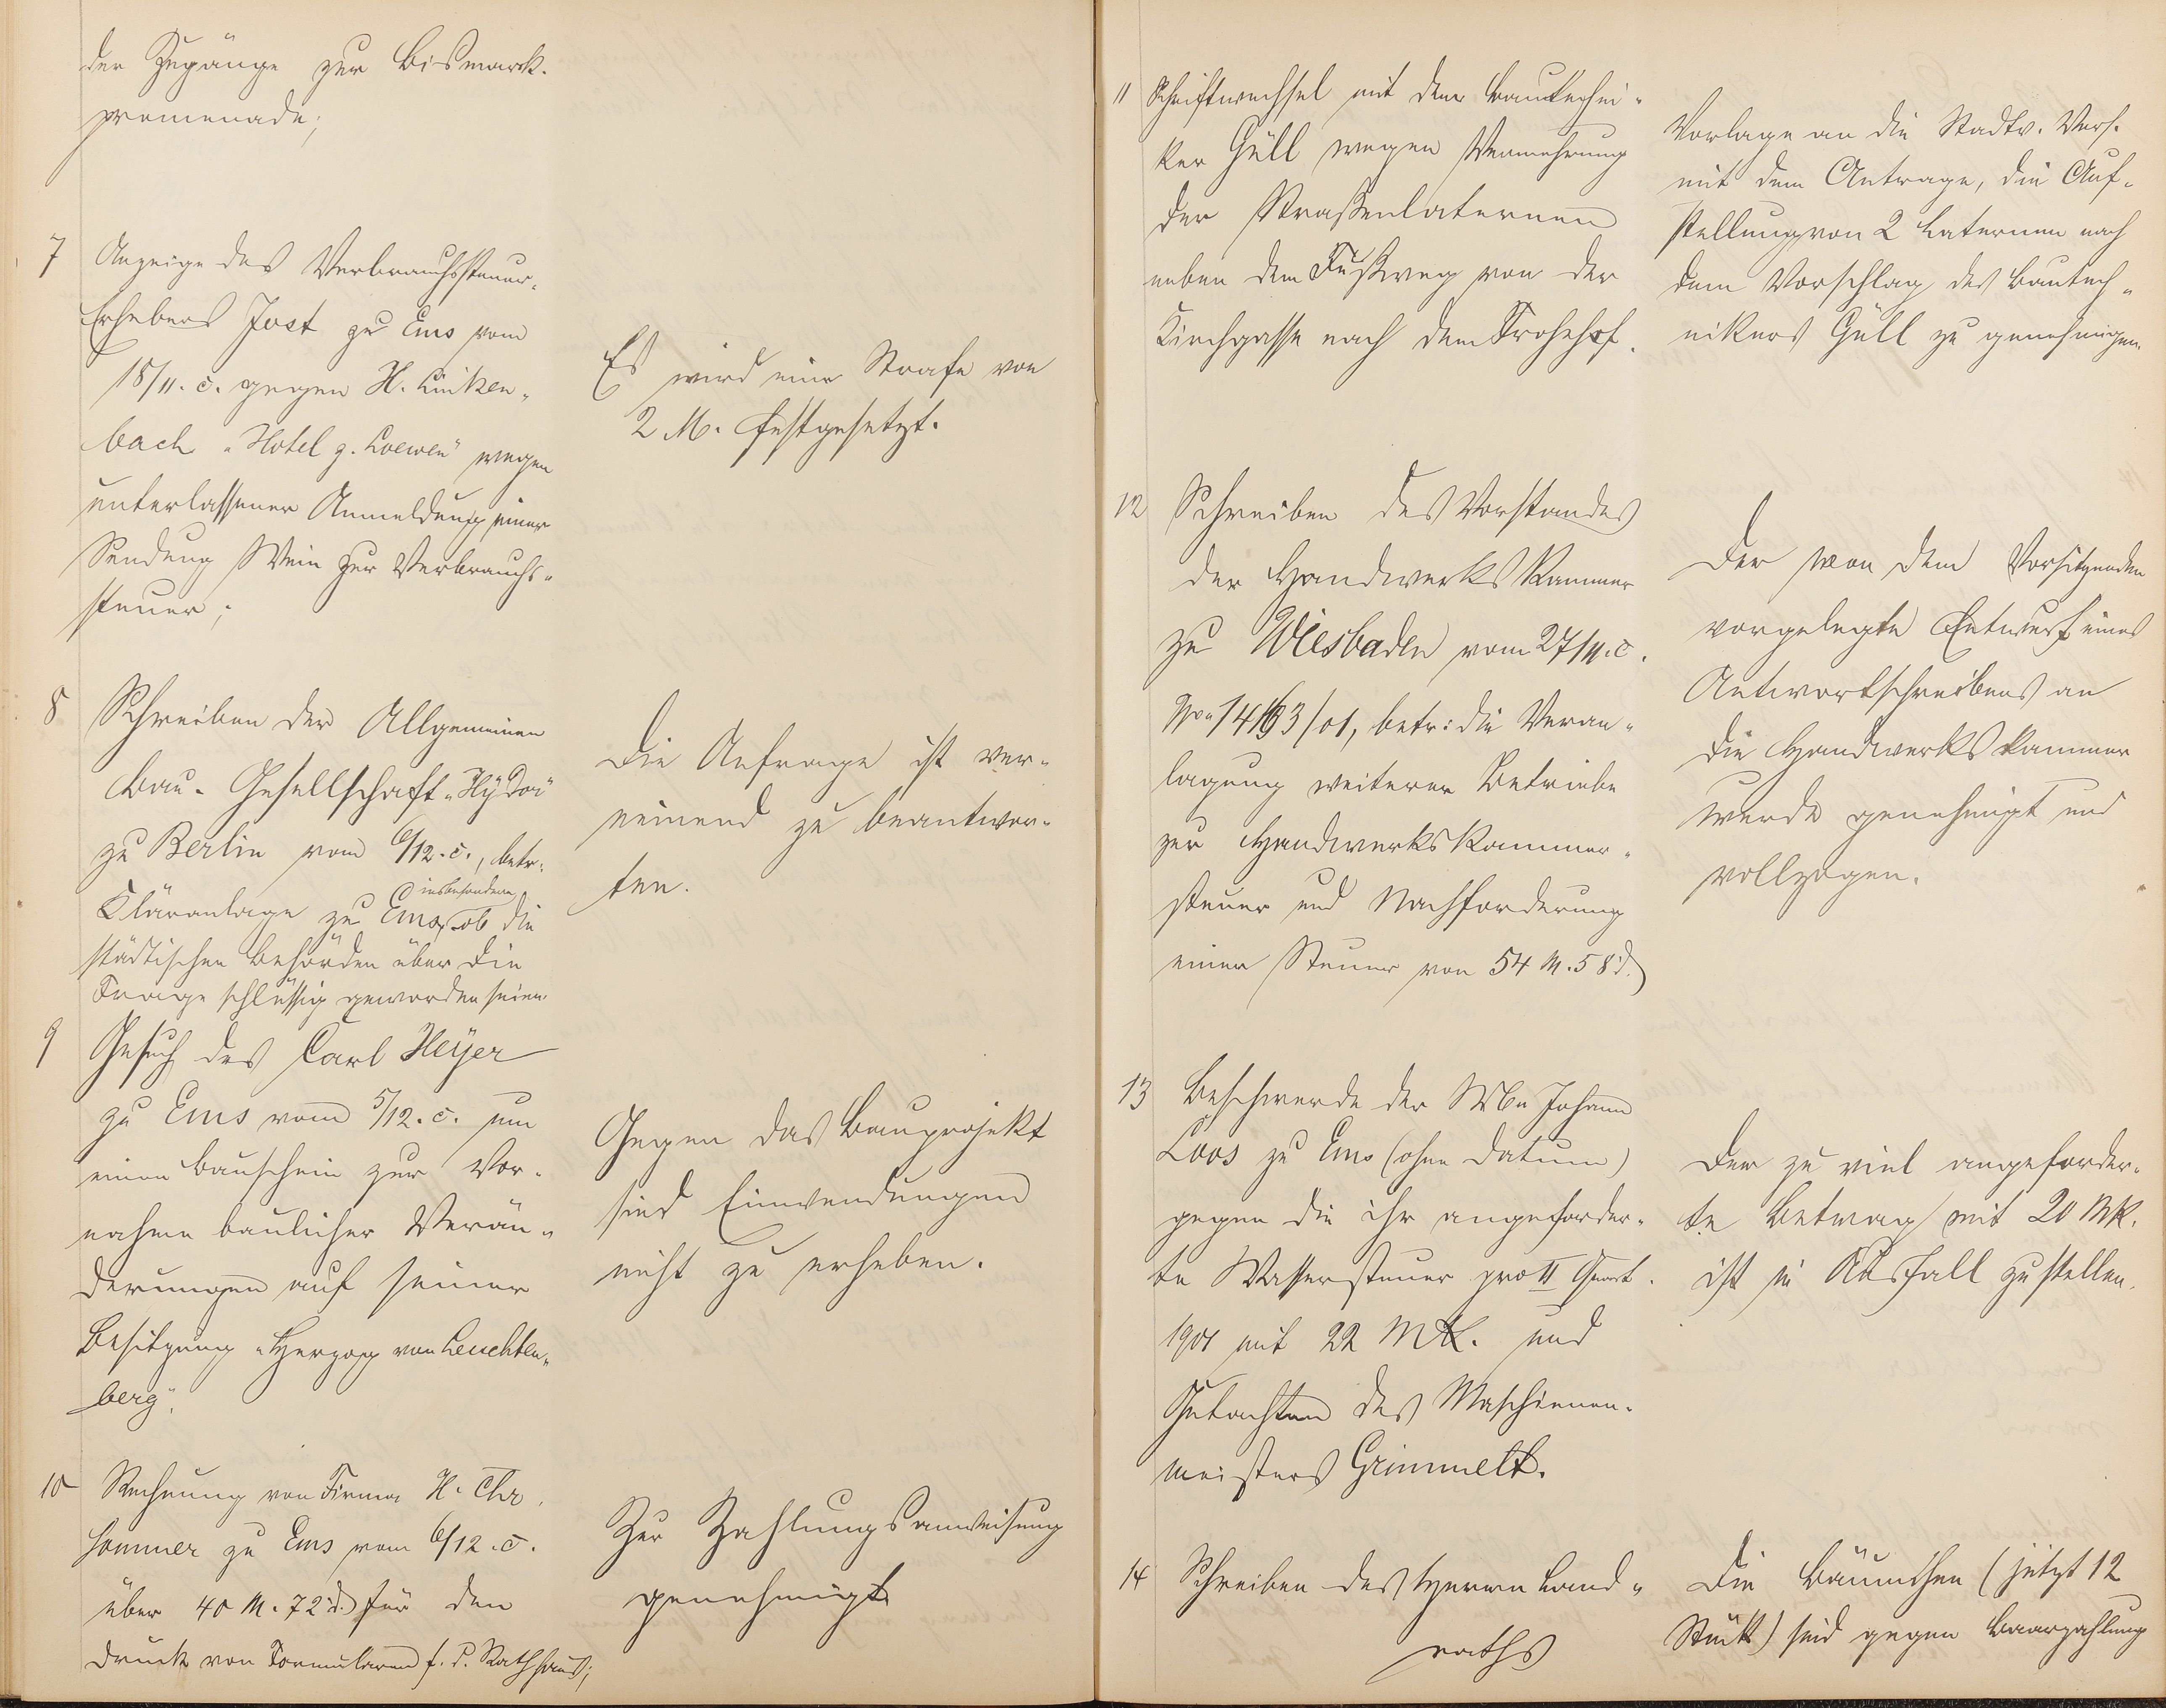 der Zugänge zur Bismarck-
promenade;
7 Anzeige des Verbrauchssteuer-
Erhebers Jost zu Ems vom
18/11. c. gegen H. Linken-
bach "Hotel z. Loewen" wegen
unterlassener Anmeldung einer
Sendung Wein zur Verbrauchs-
steuer;
Es wird eine Strafe von
2 M. festgesetzt.
8 Schreiben der Allgemeinen
Bau-Gesellschaft
zu Berlin vom 6/12. c., betr.
Kläranlage zu Ems, insbesondere ob die
städtischen Behörden über die
Frage schlüssig geworden seien.
Die Anfrage ist ver-
neinend zu beantwor-
ten.
9 Gesuch des Carl Heyer
zu Ems vom 5/12. c. um
einen Bauschein zur Vor-
nahme baulicher Verän-
derungen auf seiner
Besitzung "Herzog von Leuchten-
berg".
Gegen das Bauprojekt
sind Einwendungen
nicht zu erheben.
10 Rechnung von Firma H. Chr.
Sommer zu Ems vom 6/12. c.
über 40 M. 72 d. für den
Druck von Formularen f. d. Rathhaus;
Zur Zahlungsanweisung
genehmigt
11 Schriftwechsel mit dem Bautechni-
ker Güll wegen Vermehrung
der Straßenlaternen
neben dem Fußweg von der
Kirchgasse nach dem Frohnhof.
Vorlage an die Stadtv. Vers.
mit dem Antrage, die Auf-
stellung von 2 Laternen nach
dem Vorschlag des Bautech-
nikers Güll zu genehmigen.
12 Schreiben des Vorstandes
der Handwerkskammer
zu Wiesbaden vom 27/11. c.
betr: die Veran-
lagung weiterer Betriebe
zur Handwerkskammer-
steuer und Nachforderung
einer Steuer von 54 M. 58 d.
Der von dem Vorsitzenden
vorgelegte Entwurf eines
Antwortschreibens an
die Handwerkskammer
wurde genehmigt und
vollzogen.
13 Beschwerde der Wwe Johann
Loos zu Ems (ohne Datum)
gegen die ihr angeforder-
te Wassersteuer pro II Quart.
1901 mit 22 MK. und
Gutachten des Maschinen-
meisters Grimmelt.
Der zu viel angeforder-
te Betrag mit 20 MK.
ist in Abfall zu stellen.
14 Schreiben des Herrn Land-
raths
Die Bäumchen (jetzt 12
Stück) sind gegen Baarzahlung